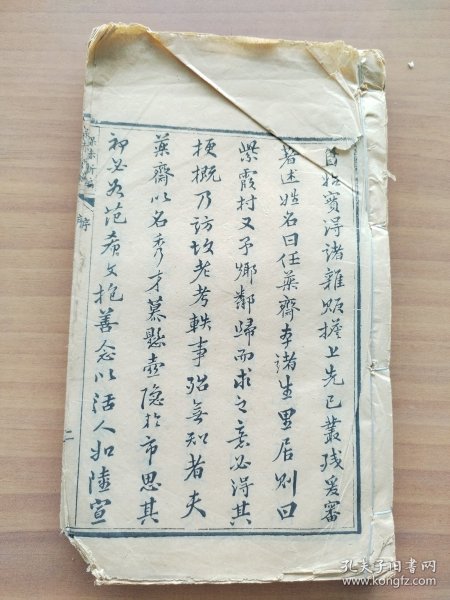 實得諸雜販擔上先已叢殘爰審
著述姓名曰任藥齋本諸生里居則曰
紫霞村又予鄉鄰歸而求之意必得其
梗概乃訪故老考軼事殆無知者夫
藥齋以名秀才慕懸壺隱於市思其
初必為范希文抱善念以活人如陸宣
序
二
孔夫子旧书网
www.kongfz.com